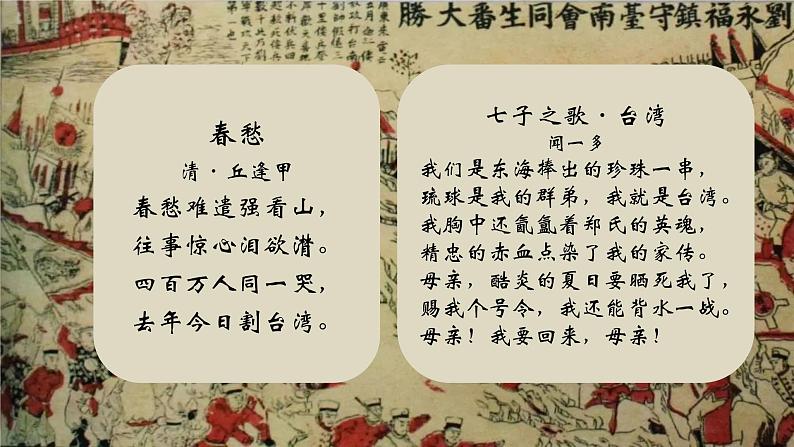 劉永福鎮守臺南會同生番大勝
春愁
清·丘逢甲
春愁难遣强看山，
往事惊心泪欲潸。
四百万人同一哭，
去年今日割台湾。
七子之歌·台湾
闻一多
我们是东海捧出的珍珠一串，
琉球是我的群弟，我就是台湾。
我胸中还氤氲着郑氏的英魂，
精忠的赤血点染了我的家传。
母亲，酷炎的夏日要晒死我了，
赐我个号令，我还能背水一战。
母亲！我要回来，母亲！